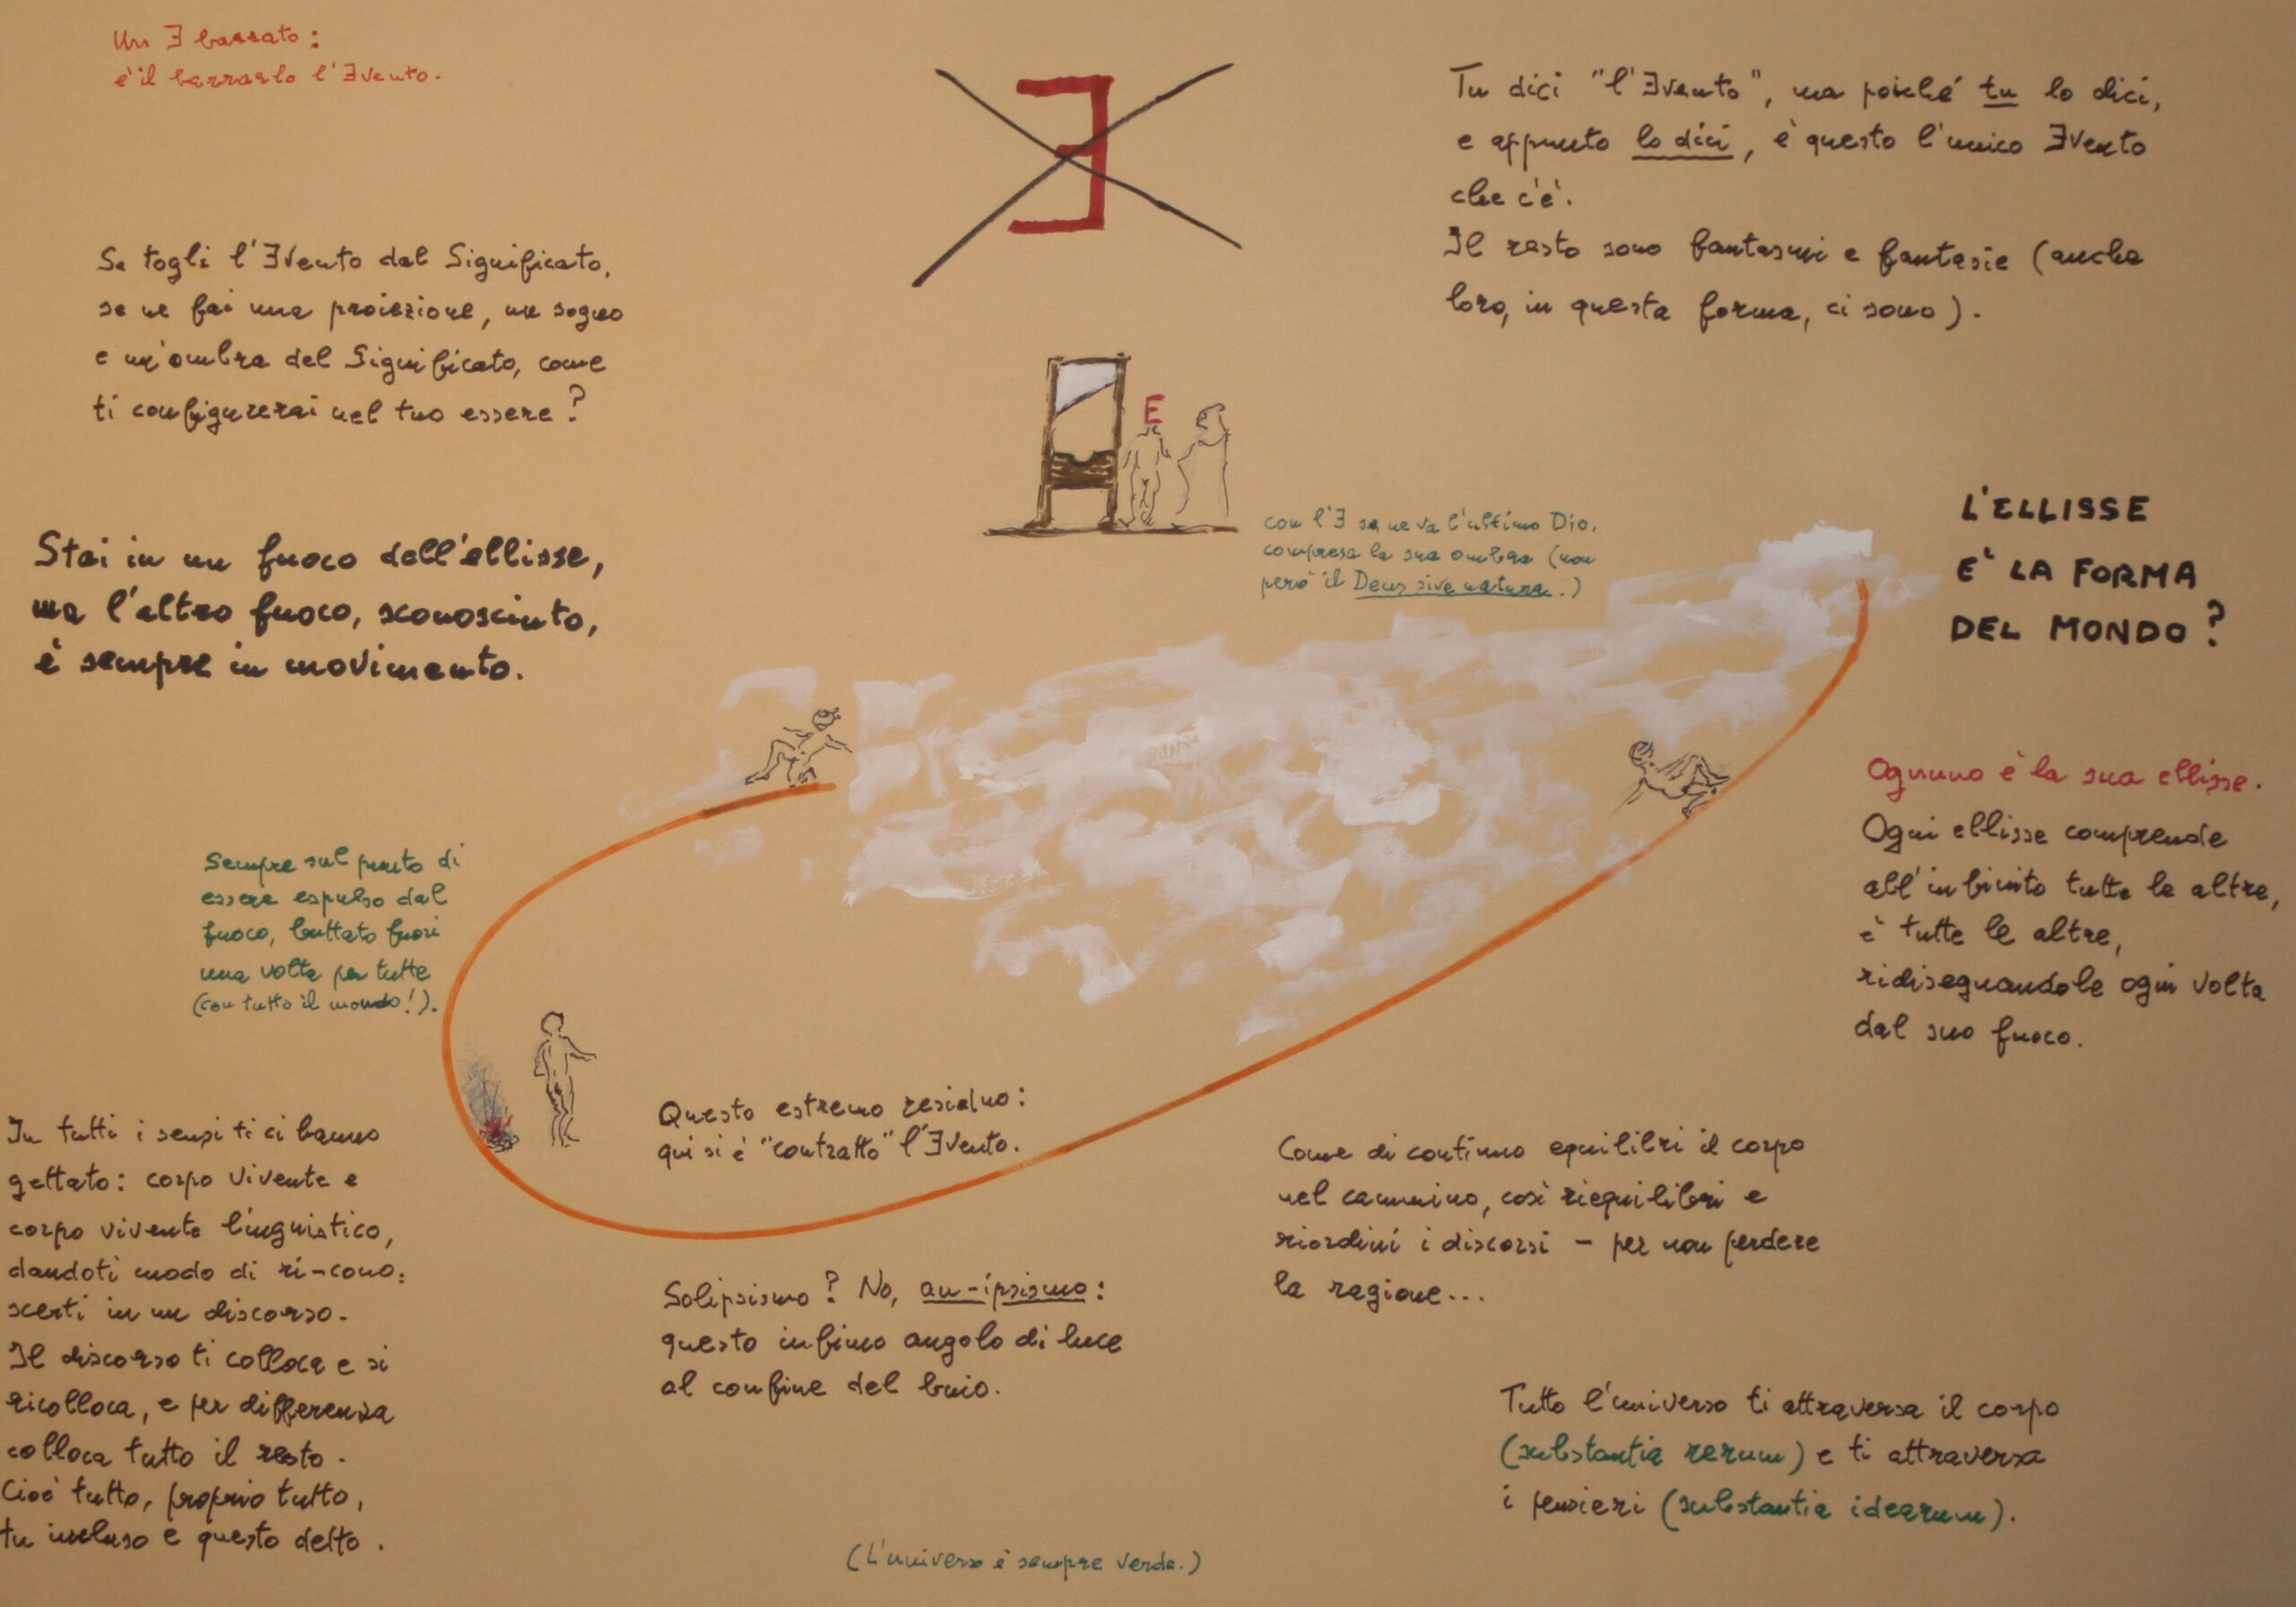 Un Ǝ bassato:
è il barrarlo l'Ǝvento.
Ǝ
Tu dici "l'Ǝvento", ma poiché tu lo dici,
e appunto lo dici, è questo l'unico Ǝvento
che c'è.
Il resto sono fantasmi e fantasie (anche
loro, in questa forma, ci sono).
Se togli l'Ǝvento dal Significato,
se ne fai una proiezione, un sogno
e un'ombra del Significato, come
ti configurerai nel tuo essere?
E
con l'Ǝ se ne va l'ultimo Dio,
compresa la sua ombra (non
però il Deus sive natura.)
L'ELLISSE
E' LA FORMA
DEL MONDO?
Stai in un fuoco dell'ellisse,
ma l'altro fuoco, sconosciuto,
è sempre in movimento.
Ognuno è la sua ellisse.
Ogni ellisse comprende
all'infinito tutte le altre,
è tutte le altre,
ridisegnandole ogni volta
dal suo fuoco.
Sempre sul punto di
essere espulso dal
fuoco, buttato fuori
una volta per tutte
(con tutto il mondo!).
Questo estremo residuo:
qui si è "contratto" l'Ǝvento.
In tutti i sensi ti ci hanno
gettato: corpo vivente e
corpo vivente linguistico,
dandoti modo di ri-cono:
scerti in un discorso.
Il discorso ti colloca e si
ricolloca, e per differenza
colloca tutto il resto.
Cioè tutto, proprio tutto,
tu incluso e questo detto.
Solipsismo? No, au-ipsismo:
questo infimo angolo di luce
al confine del buio.
Come di continuo equilibri il corpo
nel cammino, così riequilibri e
riordini i discorsi - per non perdere
la ragione...
Tutto l'universo ti attraversa il corpo
(substantia rerum) e ti attraversa
i pensieri (substantia idearum).
(L'universo è sempre verde.)